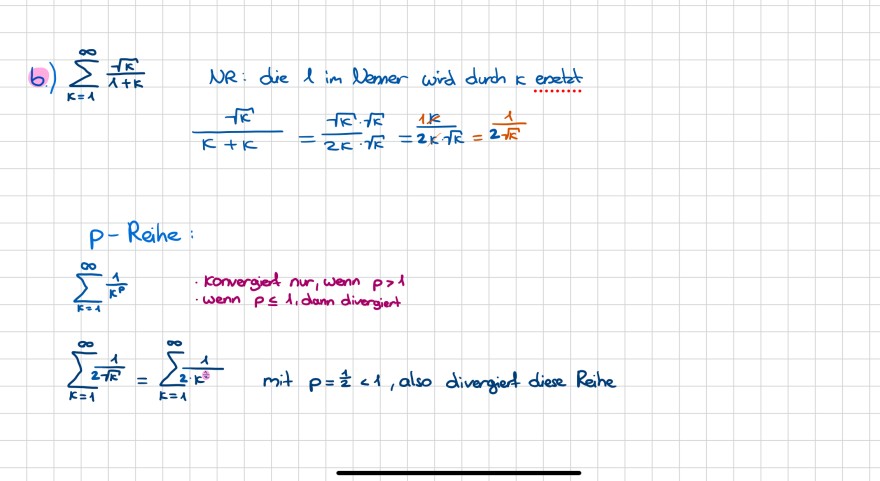 b.) ∑_{k=1}^{∞} √k / (1+k)   NR: die 1 im Nenner wird durch k ersetzt
√k / (k + k) = (√k · √k) / (2k · √k) = 1k / (2k · √k) = 1 / (2√k)
p-Reihe:
∑_{k=1}^{∞} 1 / k^p   · konvergiert nur, wenn p > 1
· wenn p ≤ 1, dann divergiert
∑_{k=1}^{∞} 1 / (2√k) = ∑_{k=1}^{∞} 1 / (2 · k)   mit p = 1/2 < 1, also divergiert diese Reihe